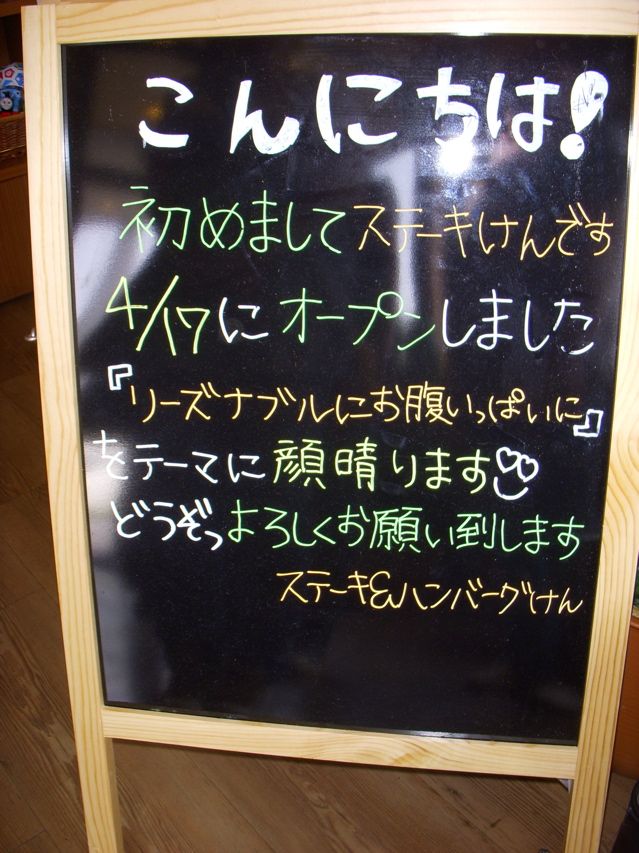 こんにちは!
初めましてステーキけんです
4/17にオープンしました
『リーズナブルにお腹いっぱいに』
をテーマに顔晴ります
どうぞっよろしくお願い到します
ステーキ&ハンバーグけん